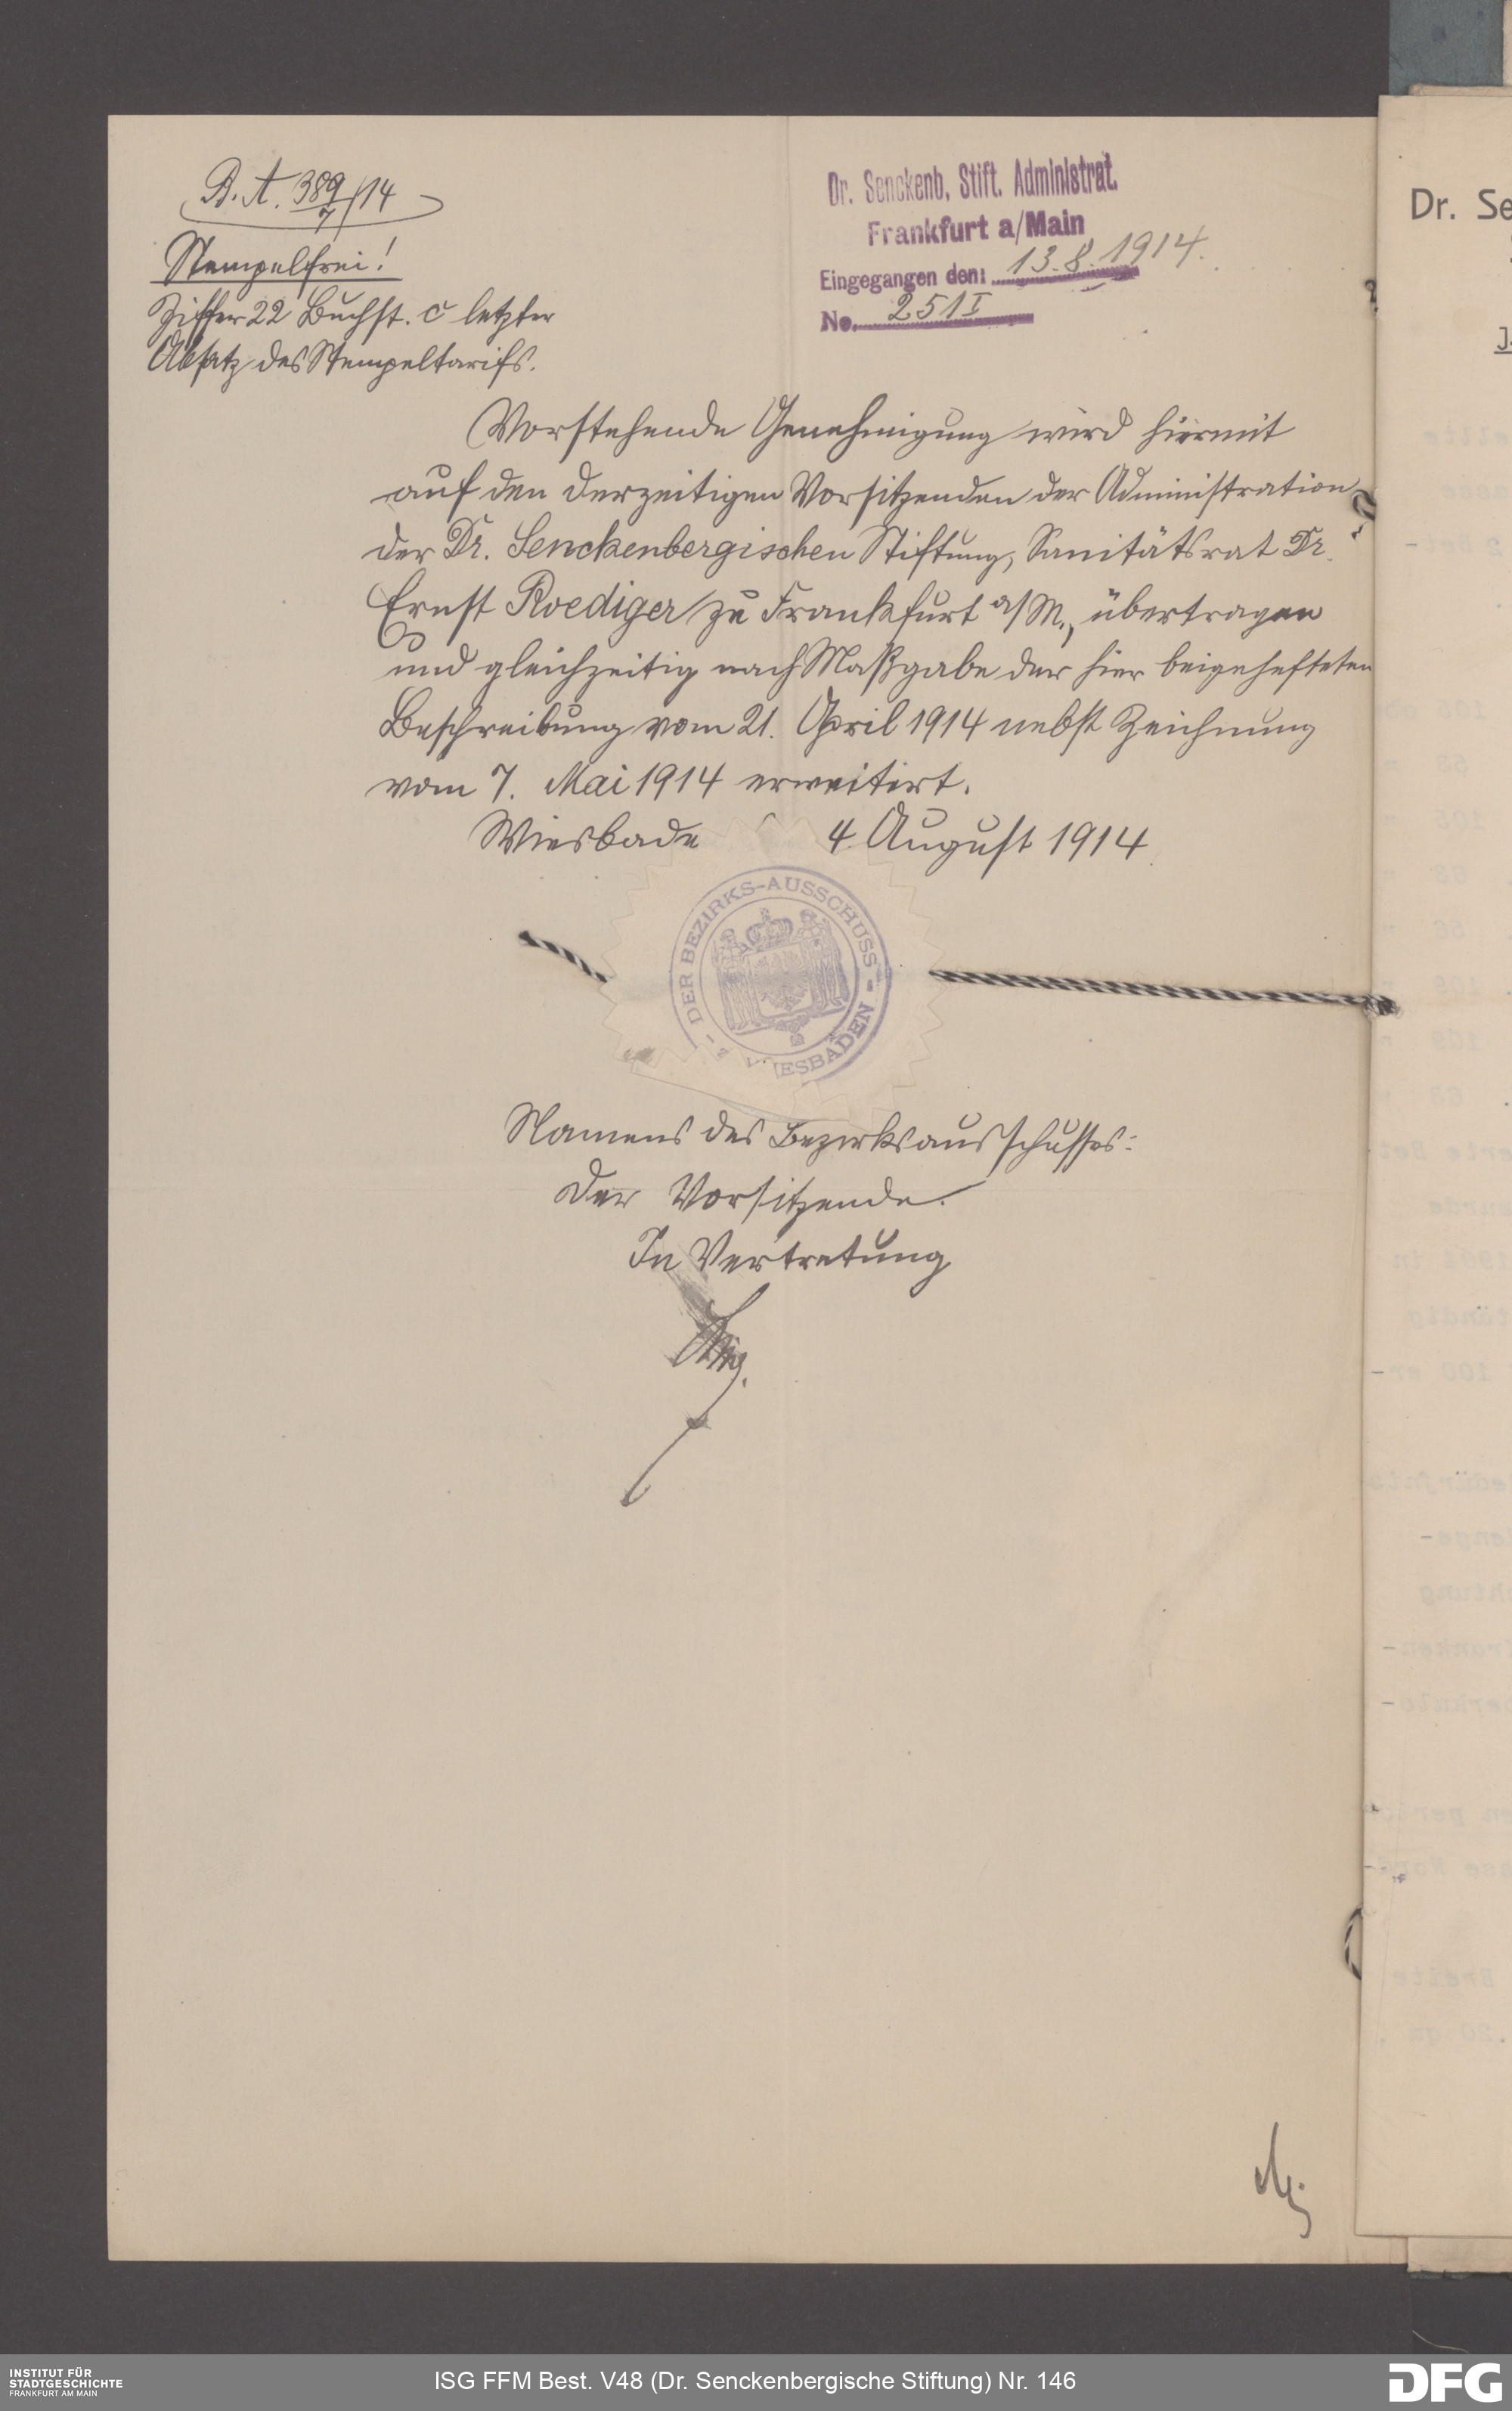 B. A. 389/7/14
Stempelfrei!
Ziffer 22 Buchst. c letzter
Absatz des Stempeltarifs.
Dr. Senckenb. Stift. Administrat.
Frankfurt a/Main
Eingegangen den: 13.8.1914.
No. 251 I
Vorstehende Genehmigung wird hiermit
auf den derzeitigen Vorsitzenden der Administration
der Dr. Senckenbergischen Stiftung, Sanitätsrat Dr.
Ernst Roediger zu Frankfurt a/M., übertragen
und gleichzeitig nach Maßgabe der hier beigehefteten
Beschreibung vom 21. April 1914 nebst Zeichnung
vom 7. Mai 1914 erweitert.
Wiesbade 4. August 1914
- DER BEZIRKS-AUSSCHUSS - Z. WIESBADEN
Namens des Bezirksausschusses:
Der Vorsitzende.
In Vertretung
Dr. Se
INSTITUT FÜR
STADTGESCHICHTE
FRANKFURT AM MAIN
ISG FFM Best. V48 (Dr. Senckenbergische Stiftung) Nr. 146
DFG